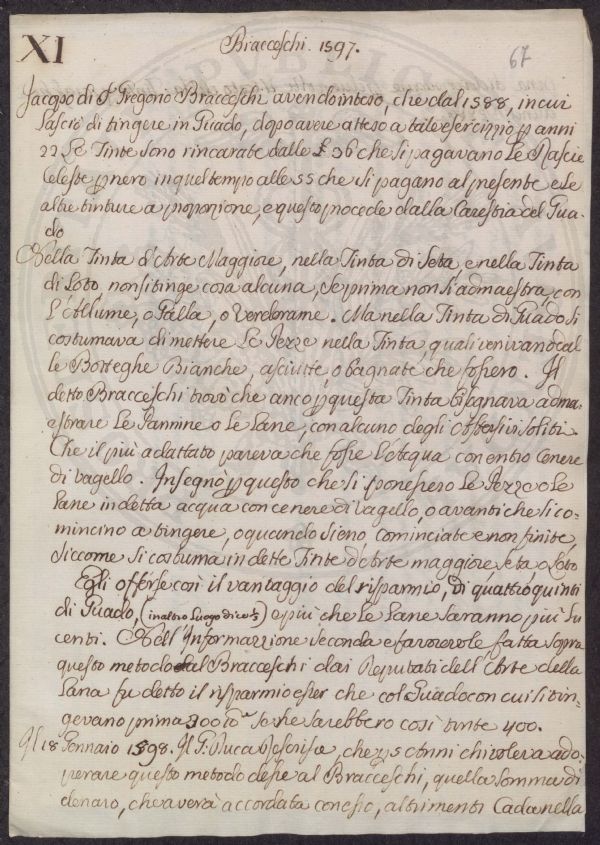 XI
Bracceschi. 1597.
67
Jacopo di S.r Gregorio Bracceschi avendo inteso, che dal 1588, in cui
lasciò di tingere in Guado, dopo avere atteso a tal'esercizzio p anni
22 Le Tinte sono rincarate dalle £ 36 che si pagavano Le Rascie
Celeste p nero in quel tempo alle 55 che si pagano al presente e le
altre tinture a proporzione, e questo procede dalla Carestia del Gua-
do
Nella Tinta d'Arte Maggiore, nella Tinta di Seta, e nella Tinta
di Loto, non si tinge cosa alcuna, se prima non si admaestra, con
L'Allume, o Galla, o Verderame. Ma nella Tinta di Guado si
costumava di mettere Le Pezze nella Tinta, quali venivano dal
le Botteghe Bianche, asciutte, o bagnate che fossero. Il
detto Bracceschi trovò che anco p questa Tinta bisognava adma-
estrare Le Pannine o le Lane, con alcuno degli soliti.
Che il più adattato pareva che fosse L'Acqua con entro Cenere
di vagello. Insegnò p questo che si ponessero Le Pezze o Le
Lane in detta acqua con cenere di vagello, o avanti che si co-
mincino a tingere, o quando sieno cominciate e non finite
siccome si costuma in dette Tinte d'Arte maggiore Seta o Loto
Egli offerse così il vantaggio del risparmio, di quattro quinti
di Guado, (in altro Luogo dice) e più che Le Lane saranno più lu
centi. Nell'Informazione seconda e favorevole fatta sopra
questo metodo dal Bracceschi dai Deputati dell'Arte della
Lana fu detto il risparmio esser che col Guado con cui si tin-
gevano prima 300 se ne sarebbero così tinte 400.
Il 18 Gennaio 1598. Il G: Duca Rescrisse, che p 5 Anni chi voleva ado-
perare questo metodo desse al Bracceschi, quella somma di
denaro, che averà accordata con esso, altrimenti Cada nella